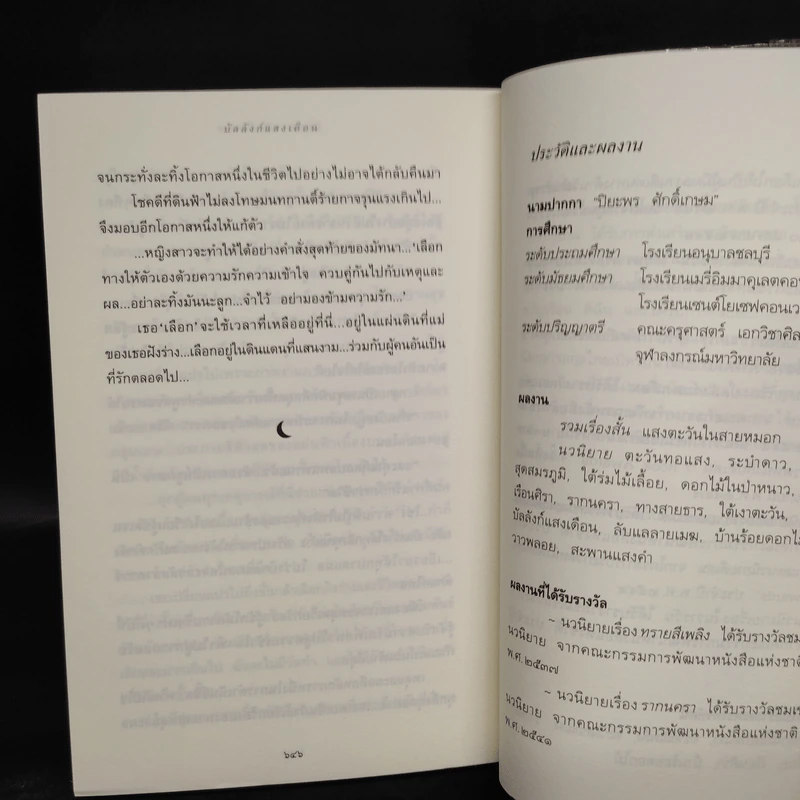 บัลลังก์แสงเดือน
จนกระทั่งละทิ้งโอกาสหนึ่งในชีวิตไปอย่างไม่อาจได้กลับคืนมา
โชคดีที่ดินฟ้าไม่ลงโทษมนทกานตี้ร้ายกาจรุนแรงเกินไป...
จึงมอบอีกโอกาสหนึ่งให้แก้ตัว
...หญิงสาวจะทำให้ได้อย่างคำสั่งสุดท้ายของมัทนา...‘เลือก
ทางให้ตัวเองด้วยความรักความเข้าใจ ควบคู่กันไปกับเหตุและ
ผล...อย่าละทิ้งมันนะลูก...จำไว้ อย่ามองข้ามความรัก...’
เธอ‘เลือก’จะใช้เวลาที่เหลืออยู่ที่นี่...อยู่ในแผ่นดินที่แม่
ของเธอฝังร่าง...เลือกอยู่ในดินแดนที่แสนงาม...ร่วมกับผู้คนอันเป็น
ที่รักตลอดไป...
๖๔๖
ประวัติและผลงาน
นามปากกา “ปิยะพร ศักดิ์เกษม”
การศึกษา
ระดับประถมศึกษา โรงเรียนอนุบาลชลบุรี
ระดับมัธยมศึกษา โรงเรียนเมรี่อิมมาคุเลตคอน
โรงเรียนเซนต์โยเซฟคอนเว
ระดับปริญญาตรี คณะครุศาสตร์ เอกวิชาศิล
จุฬาลงกรณ์มหาวิทยาลัย
ผลงาน
รวมเรื่องสั้น แสงตะวันในสายหมอก
นวนิยาย ตะวันทอแสง, ระบำดาว,
สุดสมรภูมิ, ใต้ร่มไม้เลื้อย, ดอกไม้ในป่าหนาว,
เรือนศิรา, รากนครา, ทางสายธาร, ใต้เงาตะวัน,
บัลลังก์แสงเดือน, ลับแลลายเมฆ, บ้านร้อยดอกไม้
วาวพลอย, สะพานแสงคำ
ผลงานที่ได้รับรางวัล
~ นวนิยายเรื่อง ทรายสีเพลิง ได้รับรางวัลชม
นวนิยาย จากคณะกรรมการพัฒนาหนังสือแห่งชาติ
พ.ศ.๒๕๓๗
~ นวนิยายเรื่อง รากนครา ได้รับรางวัลชมเช
นวนิยาย จากคณะกรรมการพัฒนาหนังสือแห่งชาติ
พ.ศ.๒๕๔๑